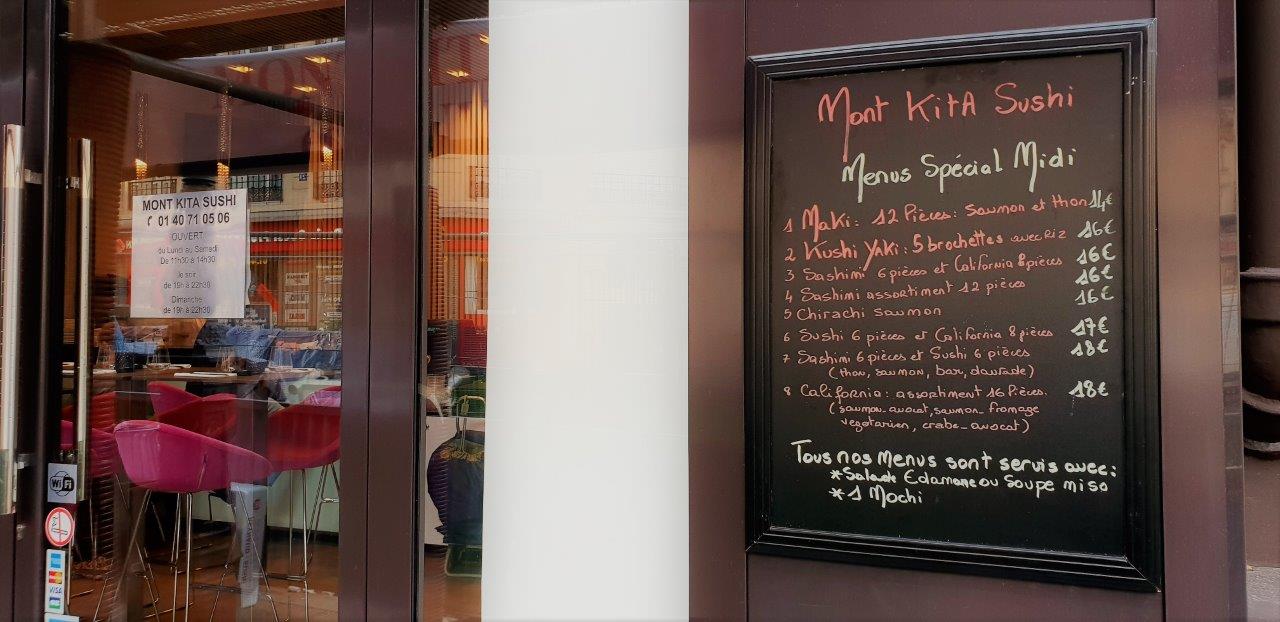 MONT KITA SUSHI
01 40 71 05 06
OUVERT
du Lundi au Samedi
De 11h30 à 14h30
le soir
de 19h à 22h30
Dimanche
de 19h à 22h30
WiFi
VISA
Mont KitA Sushi
Menus Spécial Midi
1 Maki: 12 Pièces: saumon et thon 14€
2 Kushi Yaki: 5 brochettes avec Riz 16€
3 Sashimi 6 pièces et California 8 pièces 16€
4 Sashimi assortiment 12 pièces 16€
5 Chirachi saumon 16€
6 Sushi 6 pièces et California 8 pièces 17€
7 Sashimi 6 pièces et Sushi 6 pièces 18€
(thon, saumon, bar, daurade)
8 California: assortiment 16 Pièces. 18€
(saumon-avocat, saumon-fromage
vegetarien, crabe-avocat)
Tous nos Menus sont servis avec:
*Salade Edamame ou Soupe miso
*1 Mochi